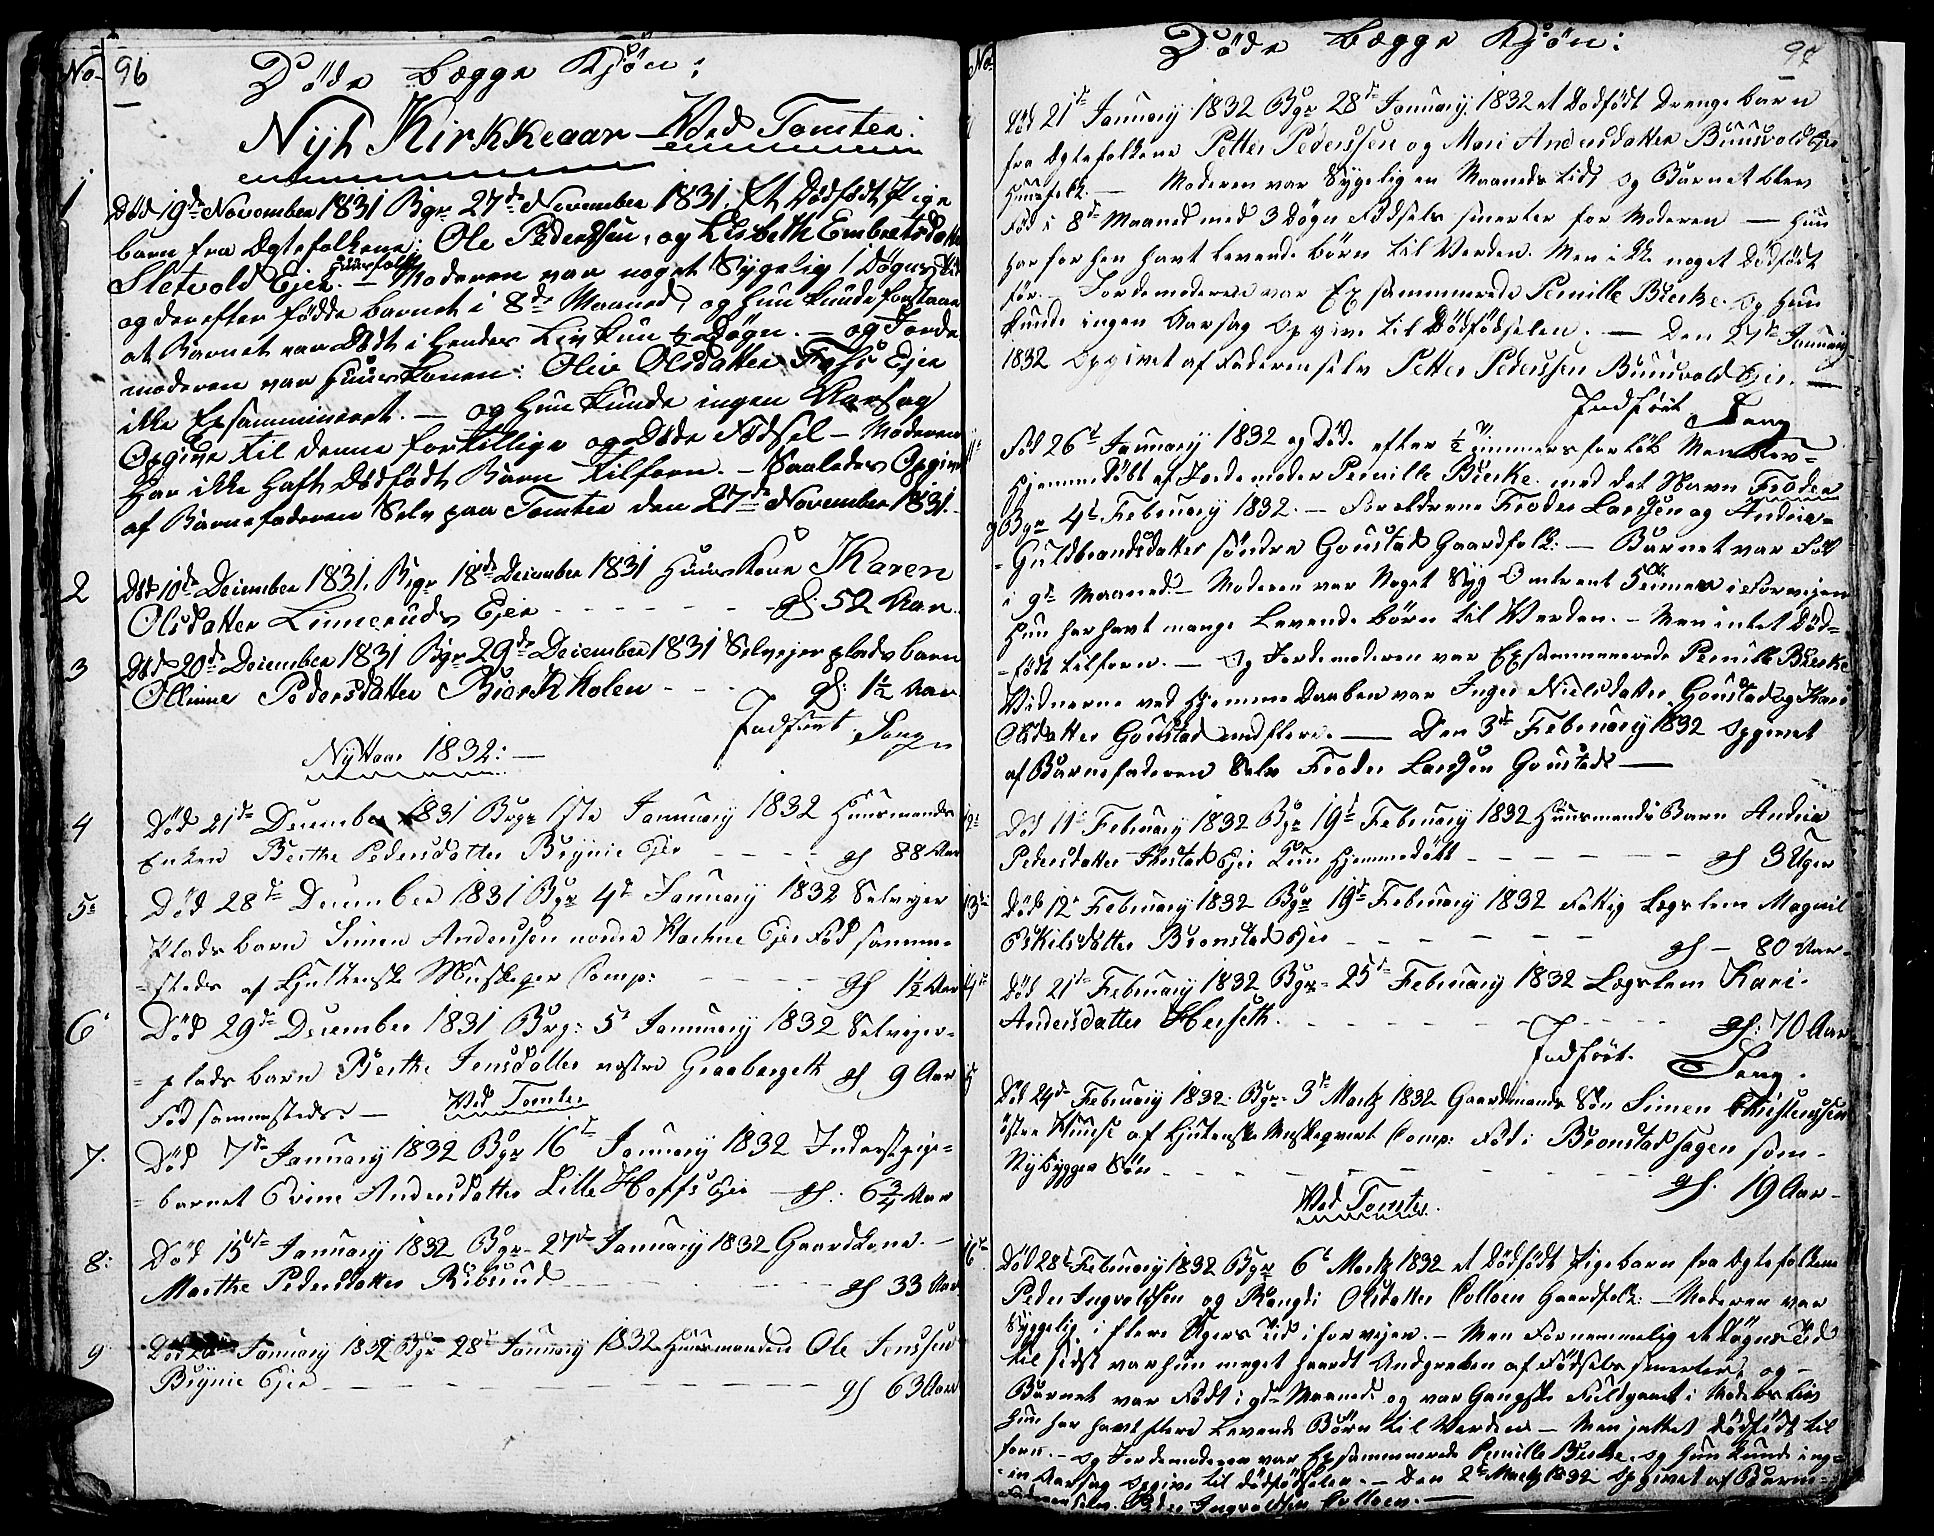 No. 96
Döde begge Kjön:
Nyt Kirkkeaar Ved Tomter:
1
Död 19de November 1831 Bgr 27de November 1831. Et Dödfödt Pige
barn fra Ægtefolkene: Ole Pederssen, og Lisbeth Embretsdatter
Sletvold Eier. Huusfolk — Moderen var noget Sygelig 1 Døgns Tid
og derefter födde barnet i 8de Maaned, og hun kunde forstaae
at Barnet var Dödt i hendes Liv kun ½ Døgn. — og Jorde
moderen var Huuskonen: Olia Olsdatter Foss Eier
ikke Exsammineret. — og hun kunde ingen Aarsag
Opgive til denne fortillige og Döde Födsel — Moderen
har ikke haft Dödfödt Barn tilforn. — Saaledes Opgivet
af Barnefaderen Selv paa Tomter den 27de November 1831.
2
Död 10de December 1831. Bgr 18de December 1831 Huuskone Karen
Olsdatter Linneruds Eier - - - - - gl: 52 Aar.
3
Död 20de December 1831 Bgr 29de December 1831 Selveier plads barn
Olline Pedersdatter Bierkholen - - - gl: 1½ Aar
Indfört Sang
Nyttaar 1832: —
4
Död 21de December 1831 Bgr 1ste January 1832 Huusmands
Enken Berthe Pedersdatter Brynie Eier - - - - gl 88 Aar
5
Död 28de December 1831 Bgr 4de January 1832 Selveier
Plads barn Simen Anderssen nordre Eier Föd samme-
-steds af Musqeqer Comp: - - - - gl 1½ Aar
6
Död 29de December 1831 Bgr: 5te January 1832 Selveier-
-plads barn Berthe Jensdatter vestre Graabergeth gl 9 Aar
Föd sammesteds — Ved Tomter
7.
Död 7de January 1832 Bgr 16de January 1832 Inderstpige-
-barnet Evine Andersdatter Lille Hoffs Eier — gl: 6¾ Aar
8:
Död 15de January 1832 Bgr. 27de January 1832 Gaardkone. —
Marthe Pedersdatter Ribsrud - - - - gl 33 Aar
9
Död January 1832 Bgr 28de January 1832 Huusmanden Ole Jenssen
Brynie Eier - - - - - - - - gl 63 Aar
No.
Döde begge Kjön: 97
Död 21de January 1832 Bgr 28de January 1832 et Dödfödt Drengebarn
fra Ægtefolkene Petter Pederssen og Mari Andersdatter Buusvold Eier
Huusfolk. — Moderen var Sygelig en Maaneds tid, og Barnet blev
föd i 8de Maaned med 3 Døgn Födsels smerter for Moderen — Hun
har forhen havt levende börn til Verden. Men ikke noget Dödfödt
för. — Jordemoderen var Exsammerede Pernille Bierke. og hun
kunde ingen Aarsag Opgive til Dödfödselen. — Den 27de January
1832 Opgivet af Faderen selv Petter Pederssen Buusvold Eier. —
Indfört Sang
Föd 26de January 1832 og Död efter ½ Timmers forlöb Men blev
Hjemmedöbt af Jordemoder Pernille Bierke. med det Navn Froder
Bgr 4de February 1832. — Forældrene Froder Larssen og Andrea
-Guldbrandsdatter söndre Goustad Gaardfolk: — Barnet var Föd
i 9de Maaned. — Moderen var Noget Syg Omtrent 5 Timer i forveien
Hun har havt mange Levende börn til Verden. — Men intet Död-
-födt tilforn. — Og Jordemoderen var Exsammerede Pernille Bierke
Vidnerne ved Hjemme Daaben var Inger Nielsdatter Goustad og Kari
Olsdatter Goustad med flere. — Den 3de February 1832 Opgivet
af Barnefaderen Selv Froder Larssen Goustad —
12
Död 11te February 1832 Bgr 19de February 1832 Huusmands Barn Andrea
Pedersdatter Eier kun hjemmedöbt - - - - gl 3 Uger
13
Död 12te February 1832 Bgr 19de February 1832 Fattig Lægslem Magnil
Eskilsdatter Bronstad Eier - - - - - gl — 80 Aar
14
Död 21de February 1832 Bgr. 25de February 1832 Lægslem Kari
Andersdatter Herseth. - - - - - gl: 70 Aar
Indfört. Sang.
15
Död 24de February 1832. Bgr. 3de Martz 1832 Gaardmands Sön Simen Christenssen
östre af Musqequet Comp: Föd i Bronstadhagen som
Nybygger Sön - - - - - gl. 19 Aar
Ved Tomter
16
Död 28de February 1832 Bgr 6te Martz 1832 et Dödfödt Pigebarn fra Ægtefolkene
Peder Ingvoldssen og Rangdi Olsdatter Colloen Gaardfolk: — Moderen var
Syggelig i flere Ugers Tid i forveien. — Men Fornemmelig et Døgns Tid
til sidst var hun meget haardt Andgreben af Födsels smerter, og —
Barnet var Födt i 9de Maaned og var Ganske Fuldgaaet i Moders Liv
Hun har havt flere Levende Börn til Verden — Men intet Dödfödt til
forn. — og Jordemoderen var Exsammerede Pernille Bierke. og hun kunde ing-
-en Aarsag Opgive til Dödfödselen. — Den 2de Martz 1832 Opgivet af Barne-
faderen selv. Peder Ingvoldssen Colloen. —